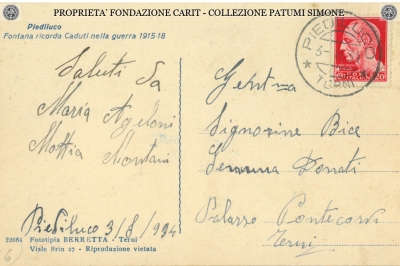 PROPRIETA' FONDAZIONE CARIT - COLLEZIONE PATUMI SIMONE
Piediluco
Fontana ricordo Caduti nella guerra 1915-18
Saluti da
Maria Ageloni
Mattia Montani
Piediluco 3/8/934
22684 Fototipia BERRETTA - Terni
Viale Brin 27 - Riproduzione vietata
PIEDILUCO
TERNI
20
Gent.me
Signorine Bice
Gemma Donati
Palazzo Pontecorvi
Terni